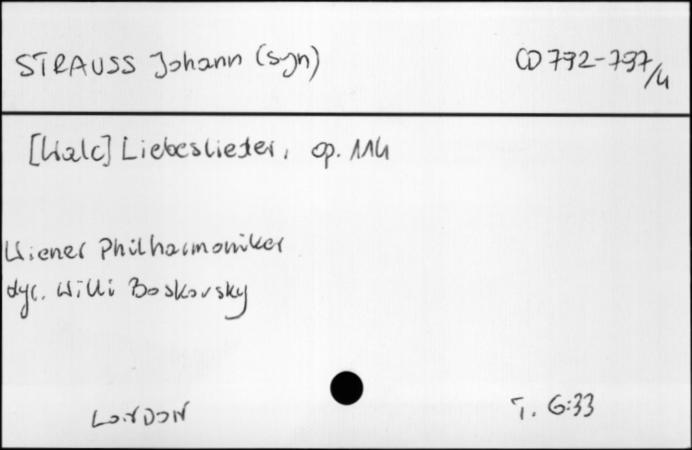 STRAUSS Johann (syn) CD 792-797/4
[Walc] Liebeslieder, op. 114
Wiener Philharmoniker
dyr. Willi Boskovsky
LONDON T. 6:33